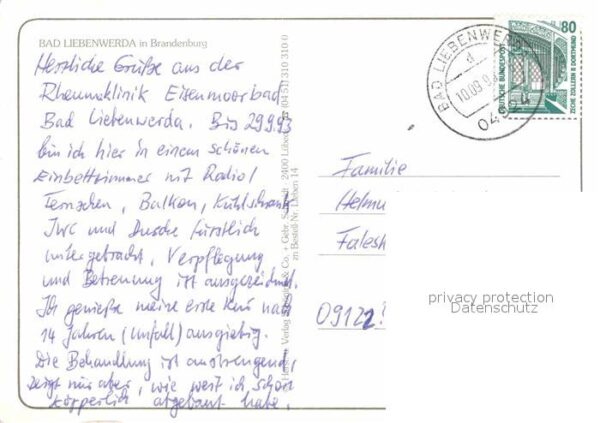 BAD LIEBENWERDA in Brandenburg
Herzliche Grüße aus der
Rheumaklinik Eisenmoorbad
Bad Liebenwerda. Bis 29.9.93
bin ich hier in einem schönen
Einbettzimmer mit Radio,
Fernsehen, Balkon, Kühlschrank,
WC und Dusche fürstlich
untergebracht, Verpflegung
und Betreuung ist ausgezeichnet.
Ich genieße meine erste Kur nach
14 Jahren (Unfall) ausgiebig.
Die Behandlung ist anstrengend,
zeigt mir aber, wie weit ich schon
körperlich abgebaut habe.
Verlag & Co. + Gebr.
2400
(04 51) 310 310 0
zu Bestell-Nr. Lieben 14
BAD LIEBENWERDA
a
10.09.9
04924
80
DEUTSCHE BUNDESPOST
ZECHE ZOLLERN II DORTMUND
Familie
Helmu
Falesh
0912
privacy protection
Datenschutz